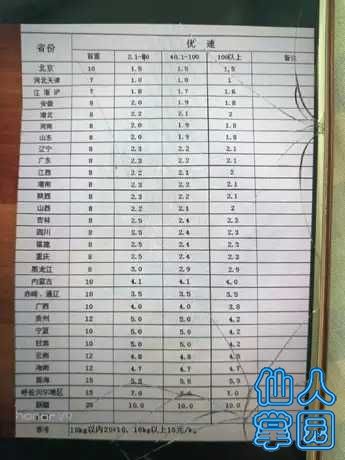 省份 优速
首重 2.1-40 40.1-100 100以上 备注
北京 10 1.5 1.5 1.5
河北天津 7 1.8 1.8 1
江浙沪 7 1.8 1.7 1.6
安徽 8 2.0 1.9 1.8
湖北 8 2.2 2.1 2
河南 8 2.0 1.9 1.8
山东 8 2.0 1.9 1.8
辽宁 8 2.3 2.2 2.1
广东 8 2.3 2.2 2.1
江西 8 2.2 2.1 2
湖南 8 2.3 2.2 2.1
陕西 8 2.3 2.2 2.1
山西 8 2.2 2.1 2
吉林 8 2.5 2.4 2.3
四川 8 2.5 2.4 2.3
福建 8 2.5 2.4 2.3
重庆 8 2.5 2.4 2.3
黑龙江 8 3.0 2.9 2.9
内蒙古 10 4.1 4.1 4.0
赤峰，通辽 10 3.5 3.5 3.5
广西 10 4.0 4.0 3.8
贵州 12 5.0 5.0 4.2
宁夏 10 5.0 5.0 4.2
甘肃 10 5.0 5.0 4.2
云南 12 4.8 4.8 4.7
海南 12 4.7 4.7 4.7
青海 15 5.9 5.9 5.9
呼伦贝尔地区 15 7.0 7.0 7.0
新疆 20 10.0 10.0 10.0
10kg以内20+10，10kg以上15元/k。
honor V9
仙人
掌园